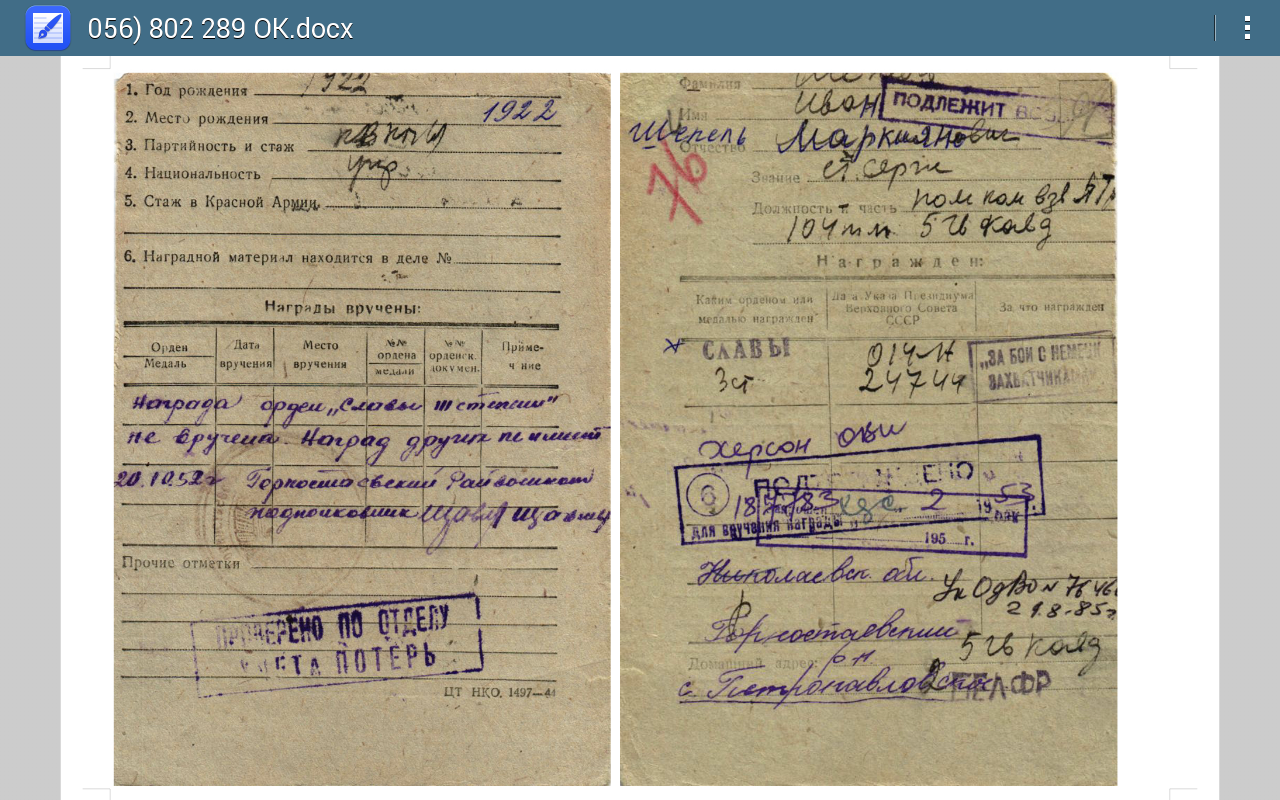 056) 802 289 OK.docx
1. Год рождения 1922
2. Место рождения 1922
3. Партийность и стаж
4. Национальность укр.
5. Стаж в Красной Армии
6. Наградной материал находится в деле №
Награды вручены:
Орден
Медаль
Дата
вручения
Место
вручения
№№
ордена
медали
№№
орденск.
докумен.
Приме-
чание
Награда орден „Славы III степени"
не вручена. Наград других не имеет
20.10.52 г Горностаевский Райвоенкомат
подполковник
Прочие отметки
ПРОВЕРЕНО ПО ОТДЕЛУ
УЧЕТА ПОТЕРЬ
ЦТ НКО. 1497—44
Фамилия
Имя Иван
ПОДЛЕЖИТ
Шепель
Отчество Маркиянович
76
Звание ст. серж
Должность и часть пом ком взв
104 5 гв кавд
Награжден:
Каким орденом или
медалью награжден
Дата Указа Президиума
Верховного Совета
СССР
За что награжден
СЛАВЫ
3 ст
014-Н
24744
„ЗА БОИ С НЕМЕЦК
ЗАХВАТЧИКАМИ
Херсон ОВК
6
187783
2
1953 г.
для вручения награды
195 г.
Николаевск. обл.
Ук ОдВО №
21.8-85г
Горностаевский
р-н
5 гв кавд
Домашний адрес:
с. Петропавловское